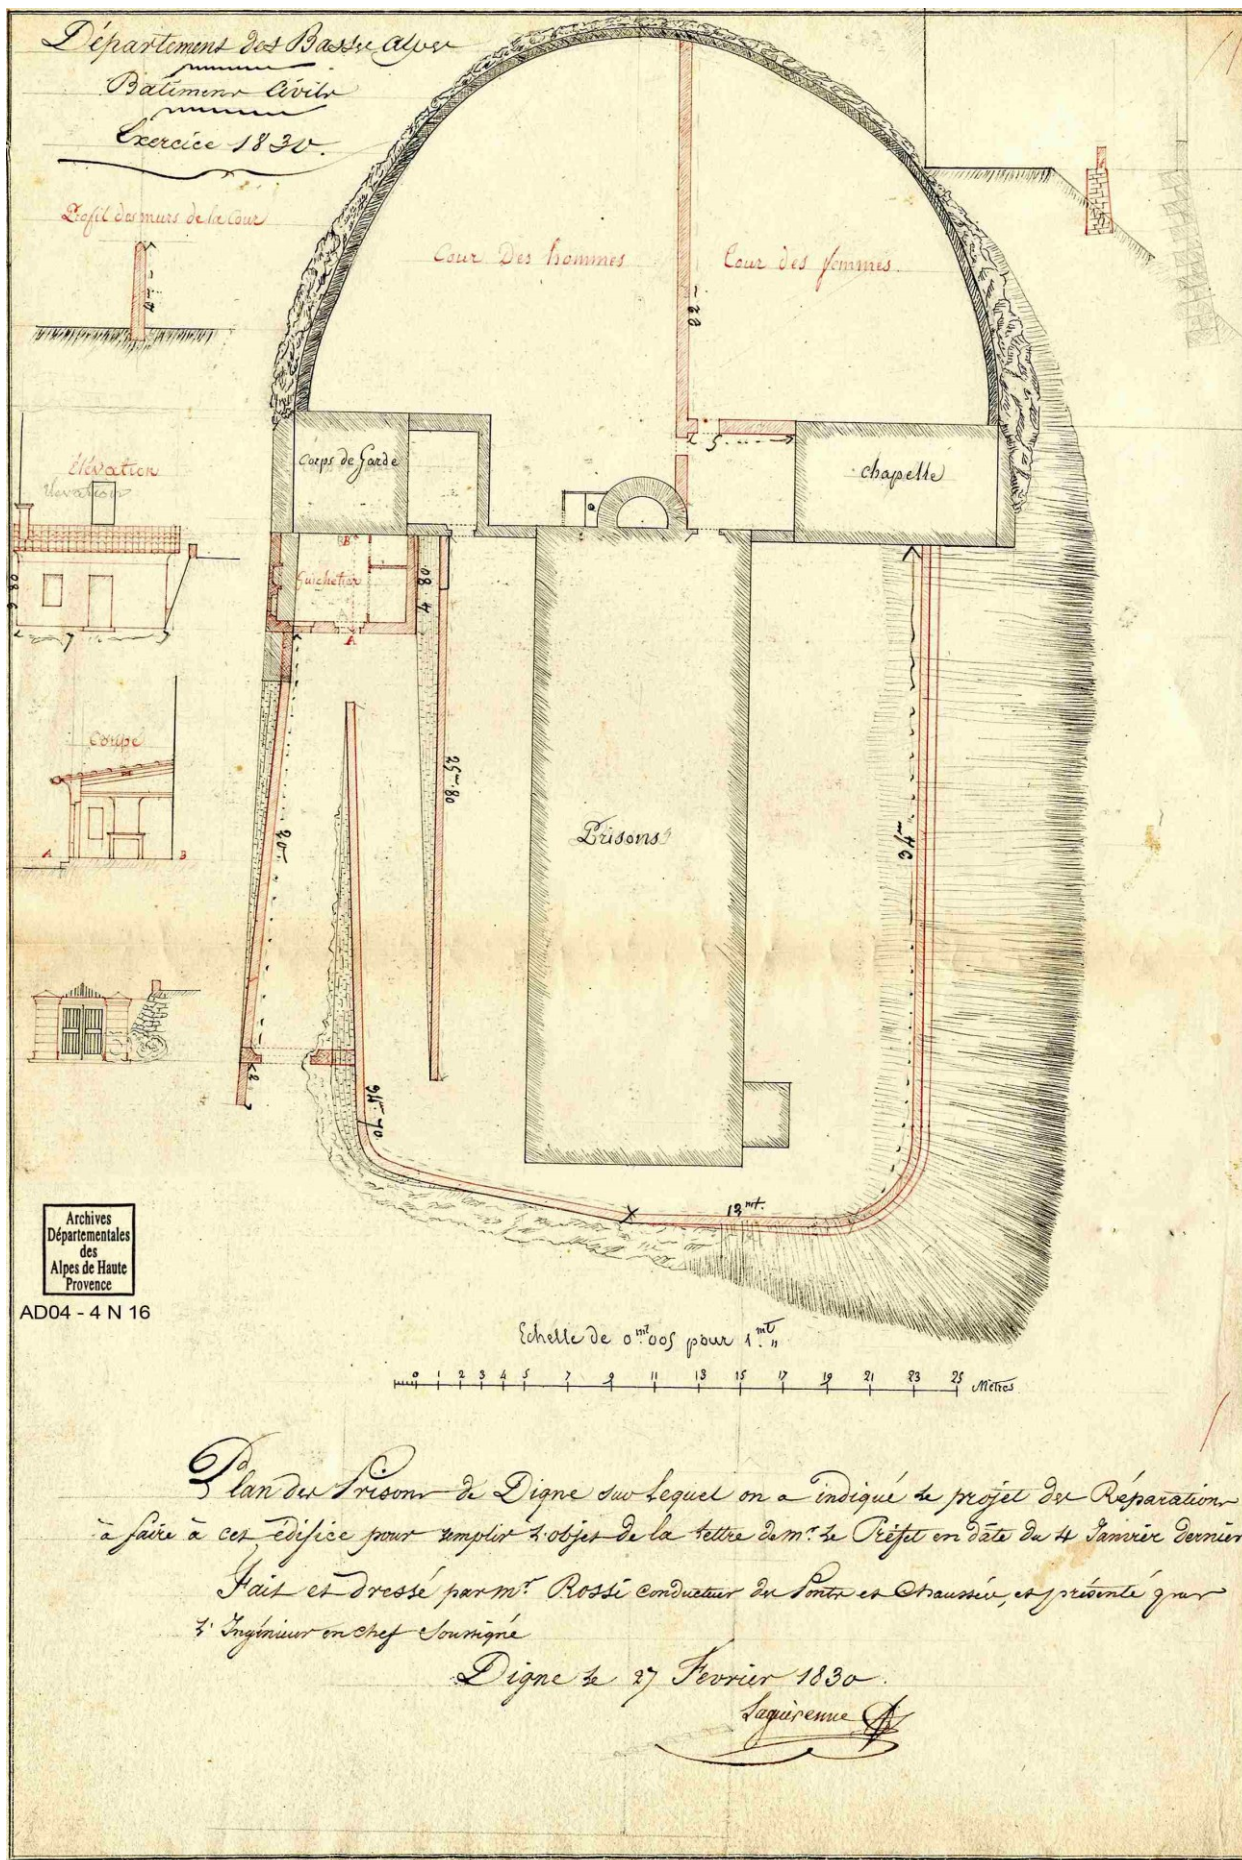 Département des Basses Alpes
Batimens Civils
Exercice 1830.
Profil des murs de la Cour
Cour Des hommes
Cour des femmes.
Elévation
Elevation
Corps de Garde
chapelle
5
Guichetier
B
A
7
Coupe
A
B
25m.80
20m
34m
Prisons
13mt.
Archives
Départementales
des
Alpes de Haute
Provence
AD04 - 4 N 16
Echelle de 0mt005 pour 1mt "
0 1 2 3 4 5 7 9 11 13 15 17 19 21 23 25 Mètres
Plan des Prisons de Digne sur lequel on a indiqué le projet des Réparations
à faire à cet édifice pour remplir l'objet de la lettre de mr. le Préfet en date du 4 Janvier dernier
Fait et dressé par mr. Rossi conducteur des Ponts et Chaussées, et présenté par
l'Ingénieur en chef Soussigné
Digne le 27 Fevrier 1830.